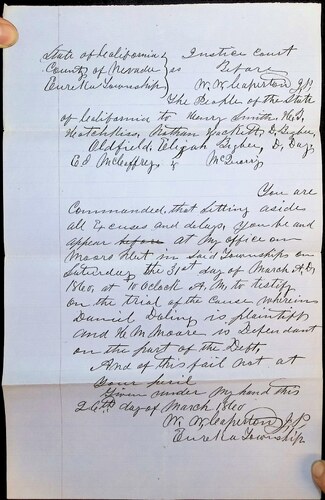 State of California } Justice Court
County of Nevada } ss Before
Eureka Township } W. W. Caperton J.P.
The People of the State
of California to Henry Smith, H. G.
Hotchkiss, Nathan Hackett, D. Gegher,
Oldfield, Elijah Gegher, D. Day,
C. E. McCaffrey, &
You are
Commanded, that Sitting asside
all Excuses and delays, you be and
appear before at My office on
Moore's Flat in Said Township on
Saturday the 31st day of March A.D.
1860, at 10 oclock A. M. to testify
on the trial of the Cause wherein
Daniel Doling is plaintiff
and H. M. Moore is Defendant
on the part of the Deft,
And of this fail not at
your peril
Given under My hand this
26th day of March 1860
W. W. Caperton J.P.
Eureka Township